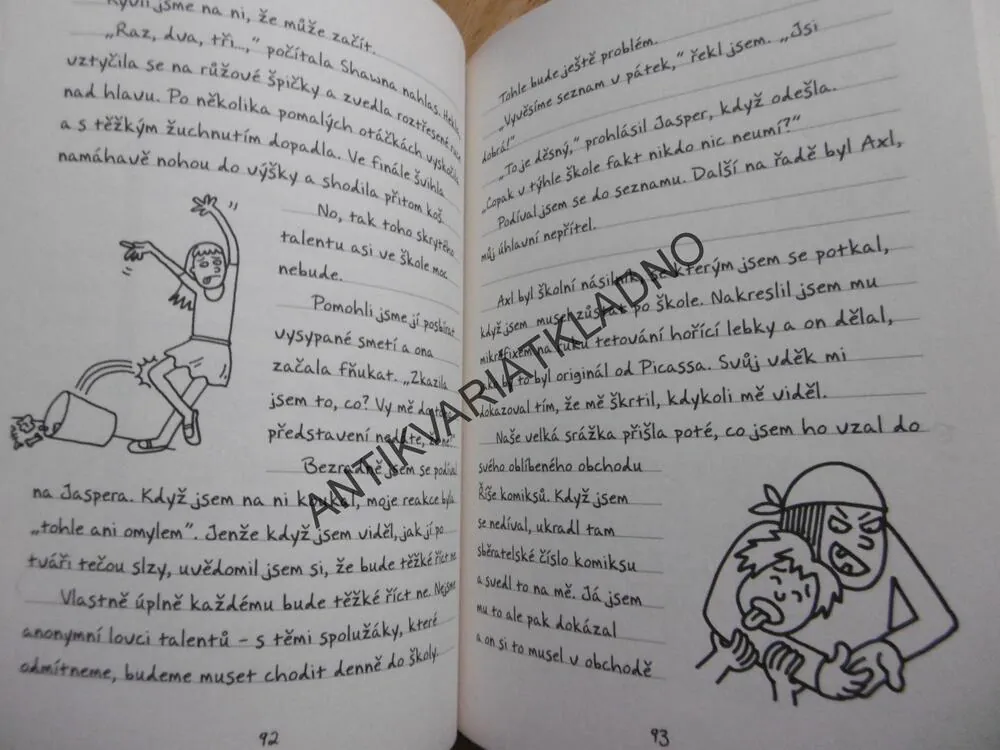 Kývli jsme na ni, že může začít.
„Raz, dva, tři...,“ počítala Shawna nahlas.
vztyčila se na růžové špičky a zvedla roztřesené ruce
nad hlavu. Po několika pomalých otáčkách vyskočila
a s těžkým žuchnutím dopadla. Ve finále švihla
namáhavě nohou do výšky a shodila přitom koš.
No, tak toho skrytého
talentu asi ve škole moc
nebude.
Pomohli jsme jí posbírat
vysypané smetí a ona
začala fňukat. „Zkazila
jsem to, co? Vy mě do toho
představení nedáte, že ne?“
Bezradně jsem se podíval
na Jaspera. Když jsem na ni koukal, moje reakce byla
„tohle ani omylem“. Jenže když jsem viděl, jak jí po
tváři tečou slzy, uvědomil jsem si, že bude těžké říct ne.
Vlastně úplně každému bude těžké říct ne. Nejsme
anonymní lovci talentů – s těmi spolužáky, které
odmítneme, budeme muset chodit denně do školy.
92
Tohle bude ještě problém.
„Vyvěsíme seznam v pátek,“ řekl jsem. „Jsi
dobrá!“
„To je děsný,“ prohlásil Jasper, když odešla.
„Copak v týhle škole fakt nikdo nic neumí?“
Podíval jsem se do seznamu. Další na řadě byl Axl,
můj úhlavní nepřítel.
Axl byl školní násilník, se kterým jsem se potkal,
když jsem musel zůstat po škole. Nakreslil jsem mu
mikrofixem na ruku tetování hořící lebky a on dělal,
jako by to byl originál od Picassa. Svůj vděk mi
dokazoval tím, že mě škrtil, kdykoli mě viděl.
Naše velká srážka přišla poté, co jsem ho vzal do
svého oblíbeného obchodu
Říše komiksů. Když jsem
se nedíval, ukradl tam
sběratelské číslo komiksu
a svedl to na mě. Já jsem
mu to ale pak dokázal
a on si to musel v obchodě
93
ANTIKVARIATKLADNO